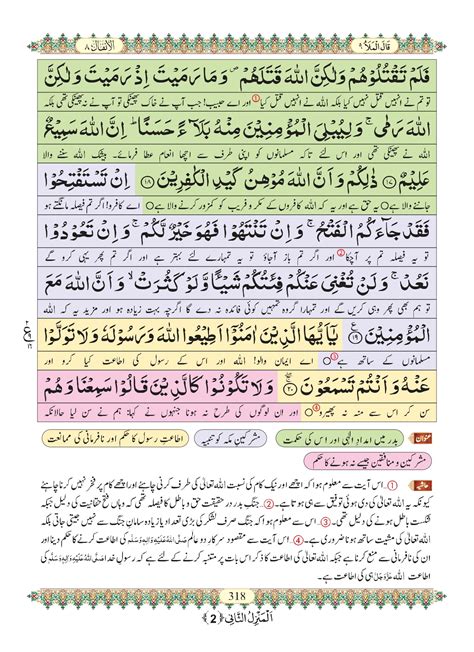 قَالَ الْمَلَاُ ٩
اَلْاَنْفَال ٨
فَلَمْ تَقْتُلُوْهُمْ وَلٰكِنَّ اللّٰهَ قَتَلَهُمْ ۪ وَمَا رَمَيْتَ اِذْ رَمَيْتَ وَلٰكِنَّ
تو تم نے انہیں قتل نہیں کیا بلکہ اللہ نے انہیں قتل کیا ① اور اے حبیب! جب آپ نے خاک پھینکی تو آپ نے نہ پھینکی تھی بلکہ
اللّٰهَ رَمٰى ۚ وَلِيُبْلِيَ الْمُؤْمِنِيْنَ مِنْهُ بَلَآءً حَسَنًا ؕ اِنَّ اللّٰهَ سَمِيْعٌ
اللہ نے پھینکی تھی اور اس لئے تاکہ مسلمانوں کو اپنی طرف سے اچھا انعام عطا فرمائے۔ بیشک اللہ سننے والا
عَلِيْمٌ ﴿۱۷﴾ ذٰلِكُمْ وَاَنَّ اللّٰهَ مُوْهِنُ كَيْدِ الْكٰفِرِيْنَ ﴿۱۸﴾ اِنْ تَسْتَفْتِحُوْا
جاننے والا ہے ○ یہ حق ہے اور یہ کہ اللہ کافروں کے مکر و فریب کو کمزور کرنے والا ہے ○ اے کافرو! اگر تم فیصلہ مانگتے ہو
فَقَدْ جَآءَكُمُ الْفَتْحُ ۚ وَاِنْ تَنْتَهُوْا فَهُوَ خَيْرٌ لَّكُمْ ۚ وَاِنْ تَعُوْدُوْا
تو یہ فیصلہ تم پر آچکا ② اور اگر تم باز آجاؤ تو یہ تمہارے لئے بہتر ہے اور اگر تم پھر یہی کرو گے
نَعُدْ ۚ وَلَنْ تُغْنِيَ عَنْكُمْ فِئَتُكُمْ شَيْـًٔا وَّلَوْ كَثُرَتْ ۙ وَاَنَّ اللّٰهَ مَعَ
تو ہم بھی پھر وہی کریں گے اور تمہارا گروہ تمہیں کوئی فائدہ نہ دے گا اگرچہ بہت زیادہ ہو اور مزید یہ کہ اللہ
الْمُؤْمِنِيْنَ ﴿۱۹﴾ يٰۤاَيُّهَا الَّذِيْنَ اٰمَنُوْۤا اَطِيْعُوا اللّٰهَ وَرَسُوْلَهٗ وَلَا تَوَلَّوْا
مسلمانوں کے ساتھ ہے ③ ○ اے ایمان والو! اللہ اور اس کے رسول کی اطاعت کیا کرو اور
عَنْهُ وَاَنْتُمْ تَسْمَعُوْنَ ﴿۲۰﴾ وَلَا تَكُوْنُوْا كَالَّذِيْنَ قَالُوْا سَمِعْنَا وَهُمْ
سن کر اس سے منہ نہ پھیرو ④ ○ اور ان لوگوں کی طرح نہ ہونا جنہوں نے کہا: ہم نے سن لیا حالانکہ
عنوان بدر میں امدادِ الٰہی اور اس کی حکمت مشرکینِ مکہ کو تنبیہ اطاعتِ رسول کا حکم اور نافرمانی کی ممانعت
مشرکین و منافقین جیسے نہ ہونے کا حکم
حاشیہ ①..اس آیت سے معلوم ہوا کہ اچھے اور نیک کام کی نسبت اللہ تعالیٰ کی طرف کرنی چاہئے اور اچھے کام پر فخر نہیں کرنا چاہئے
کیونکہ یہ اللہ تعالیٰ کی دی ہوئی توفیق سے ہی ہوتا ہے۔ ②..جنگِ بدر در حقیقت حق و باطل کا فیصلہ تھی کہ وہاں فتح حقانیت کی دلیل جبکہ
شکست باطل ہونے کی دلیل تھی۔ ③..اس آیت سے معلوم ہوا کہ صرف لشکر کی بڑی تعداد یا زیادہ سامانِ جنگ سے نہیں جیتی جاتی بلکہ
اللہ تعالیٰ کی مشیت ساتھ ہونا ضروری ہے۔ ④..اس آیت سے مقصود سرکارِ دو عالم صَلَّی اللّٰہُ عَلَیْہِ وَاٰلِہٖ وَسَلَّم کی اطاعت کرنے کا حکم دینا اور
ان کی نافرمانی سے منع کرنا ہے جبکہ اللہ تعالیٰ کی اطاعت کا ذکر اس بات پر متنبہ کرنے کے لئے ہے کہ رسولِ خدا صَلَّی اللّٰہُ عَلَیْہِ وَاٰلِہٖ وَسَلَّم کی
اطاعت اللہ عَزَّوَجَلَّ ہی کی اطاعت ہے۔
318
اَلْمَنْزِلُ الثَّانِی ﴿2﴾